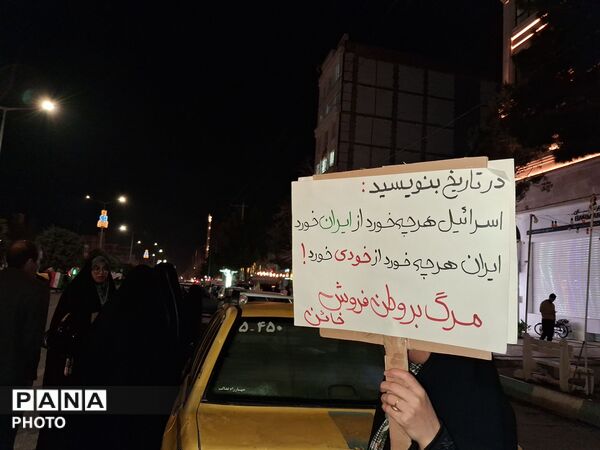 در تاریخ بنویسید :
اسرائیل هرچه خورد از ایران خورد
ایران هرچه خورد از خودی خورد !
مرگ بر وطن فروش
خائن
۵۰۴۵۰
PANA
PHOTO